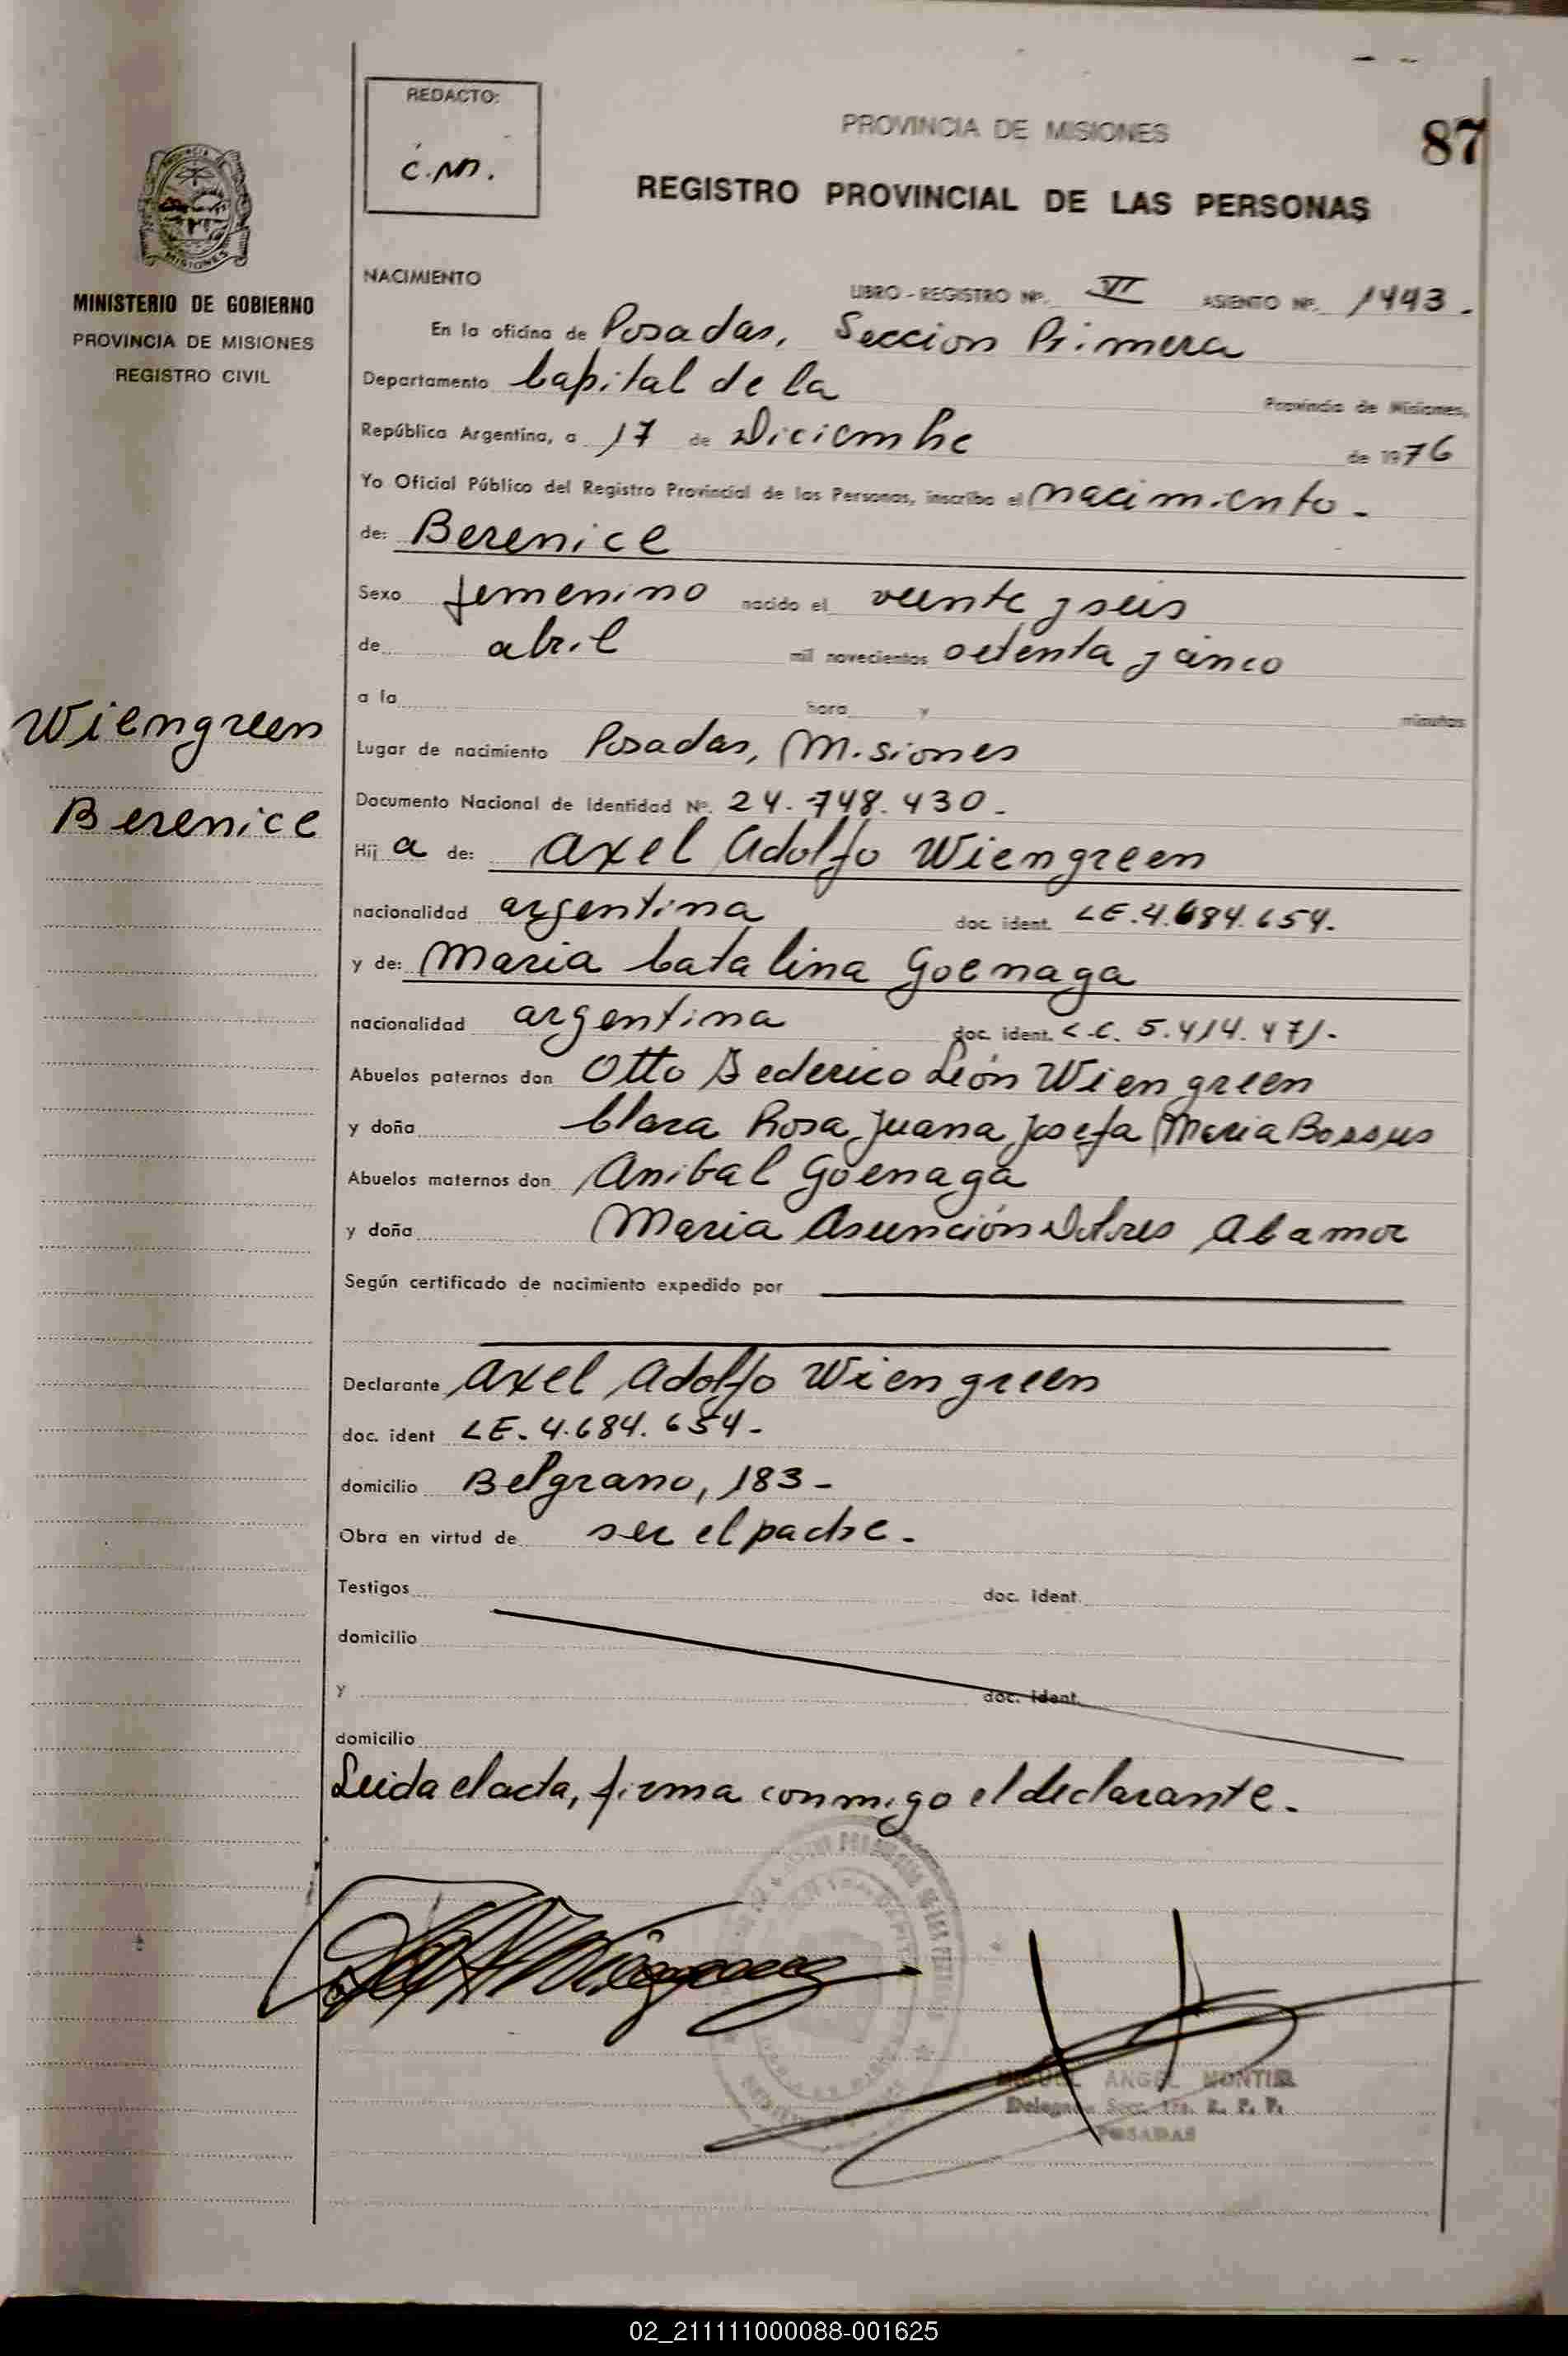 87
REDACTO:
C.M.
PROVINCIA DE MISIONES
REGISTRO PROVINCIAL DE LAS PERSONAS
MISIONES
MINISTERIO DE GOBIERNO
PROVINCIA DE MISIONES
REGISTRO CIVIL
NACIMIENTO
LIBRO - REGISTRO Nº. VI ASIENTO Nº. 1443.
En la oficina de Posadas, Seccion Primera
Departamento Capital de la Provincia de Misiones,
República Argentina, a 17 de Diciembre de 1976
Yo Oficial Público del Registro Provincial de las Personas, inscribo el nacimiento.
de: Berenice
Sexo femenino nacido el veinte y seis
de abril mil novecientos setenta y cinco
a la hora y minutos
Wiengreen
Berenice
Lugar de nacimiento Posadas, Misiones
Documento Nacional de Identidad Nº. 24.748.430.
Hij a de: Axel Adolfo Wiengreen
nacionalidad argentina doc. ident. LE.4.684.654.
y de: Maria Catalina Goenaga
nacionalidad argentina doc. ident. L.C. 5.414.471.
Abuelos paternos don Otto Federico León Wiengreen
y doña Clara Rosa Juana Josefa Maria Bossus
Abuelos maternos don Anibal Goenaga
y doña Maria Asunción Dolores
Según certificado de nacimiento expedido por
Declarante Axel Adolfo Wiengreen
doc. ident LE. 4.684.654.
domicilio Belgrano, 183-
Obra en virtud de ser el padre.
Testigos doc. ident.
domicilio
y doc. ident.
domicilio
Leida el acta, firma conmigo el declarante.
MIGUEL ANGEL MONTIEL
POSADAS
02_211111000088-001625